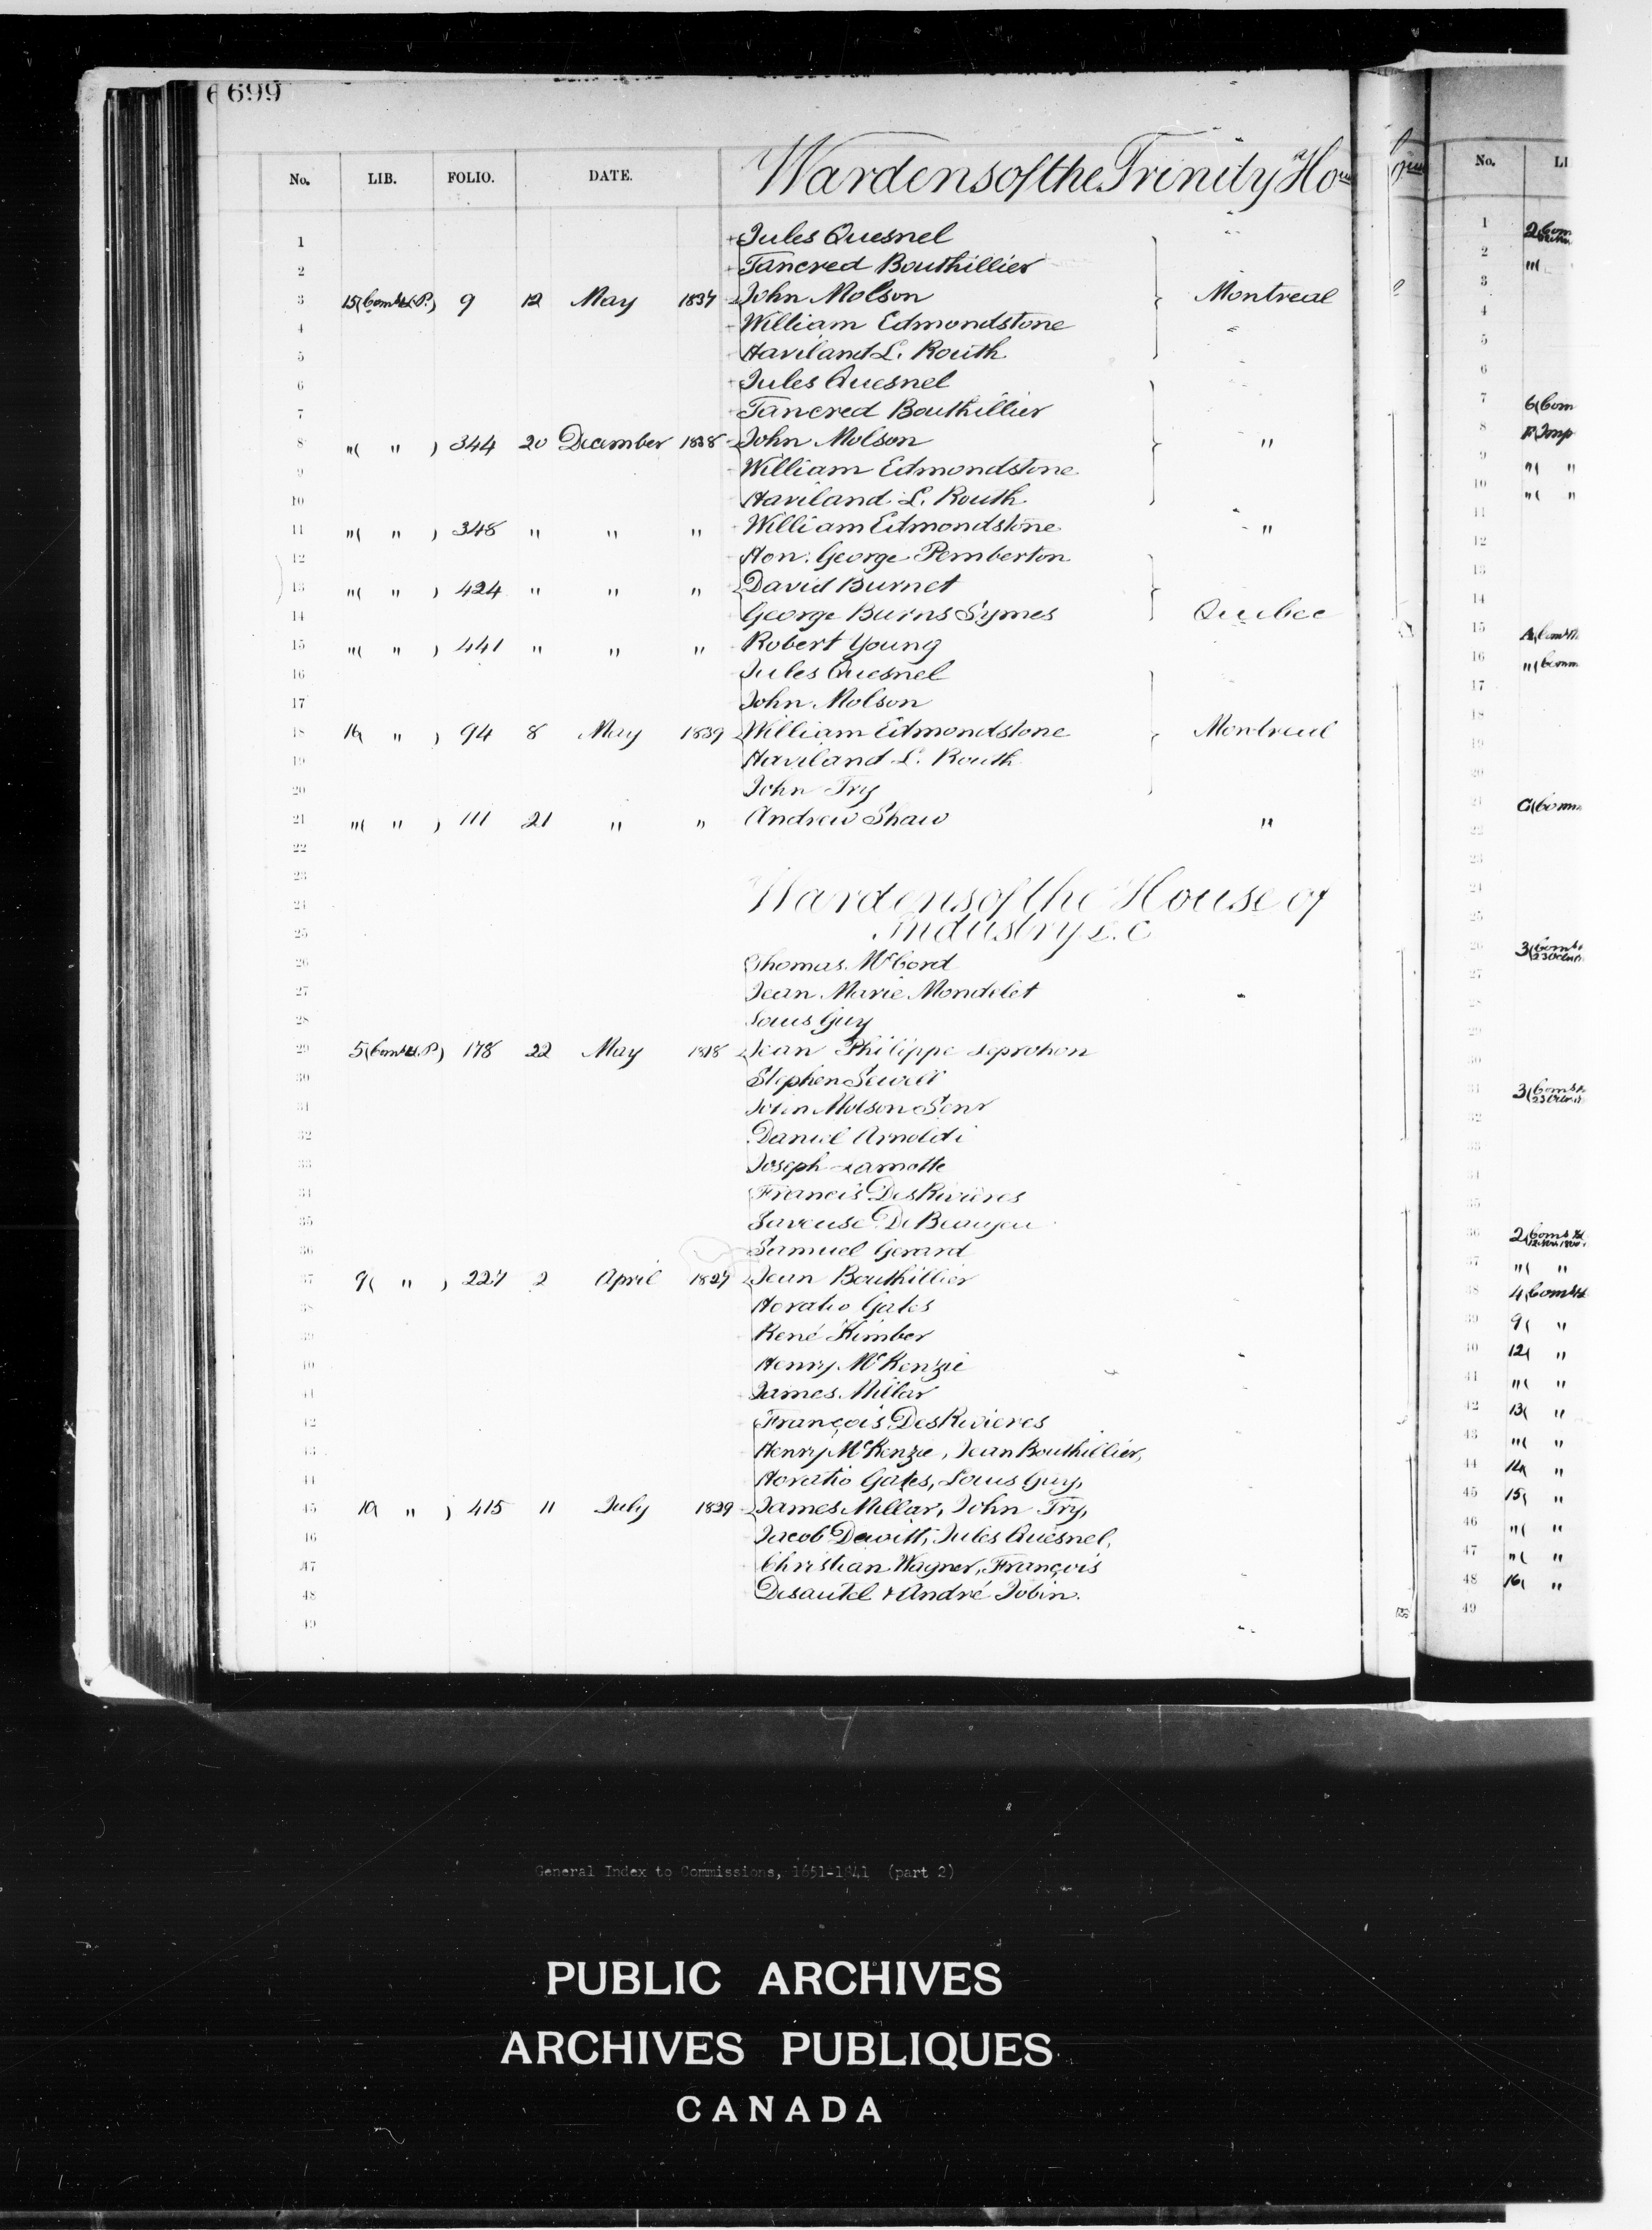 699
No. LIB. FOLIO. DATE. Wardens of the Trinity House
1 Jules Quesnel
2 Tancred Bouthillier
3 15(Coms L.P.) 9 12 May 1837 John Molson Montreal
4 William Edmondstone
5 Haviland L. Routh
6 Jules Quesnel
7 Tancred Bouthillier
8 "( " ) 344 20 December 1838 John Molson "
9 William Edmondstone
10 Haviland L. Routh
11 "( " ) 348 " " " William Edmondstone "
12 Hon: George Pemberton
13 "( " ) 424 " " " David Burnet
14 George Burns Symes Quebec
15 "( " ) 441 " " " Robert Young
16 Jules Quesnel
17 John Molson
18 16( " ) 94 8 May 1839 William Edmondstone Montreal
19 Haviland L. Routh
20 John Try
21 "( " ) 111 21 " " Andrew Shaw "
22
23
24 Wardens of the House of
25 Industry L.C
26 Thomas McCord
27 Jean Marie Mondelet
28 Louis Guy
29 5(Coms L.P) 178 22 May 1818 Jean Philippe Leprohon
30 Stephen Sewell
31 John Molson Senr
32 Daniel Arnoldi
33 Joseph Lamotte
34 Francis DesRivières
35 Saveuse De Beaujeu
36 Samuel Gerard
37 9( " ) 227 2 April 1827 Jean Bouthillier
38 Horatio Gates
39 René Kimber
40 Henry McKenzie
41 James Millar
42 François DesRivieres
43 Henry McKenzie, Jean Bouthillier,
44 Horatio Gates, Louis Guy,
45 10( " ) 415 11 July 1829 James Millar, John Try,
46 Jacob Dewitt, Jules Quesnel,
47 Christian Wagner, François
48 Desautel & André Jobin.
49
No. LI
1 2(Com
2 "(
3
4
5
6
7 6(Com
8 F(Imp
9 "( "
10 "( "
11
12
13
14
15
16 "(Comm
17
18
19
20
21 C(Comm
22
23
24
25
26 3(Coms
27
28
29
30
31 3(Coms
32
33
34
35
36 2(Coms
37 "( "
38 4(Coms
39 9( "
40 12( "
41 "( "
42 13( "
43 "( "
44 14( "
45 15( "
46 "( "
47 "( "
48 16( "
49
General Index to Commissions, 1651-1841 (part 2)
PUBLIC ARCHIVES
ARCHIVES PUBLIQUES
CANADA